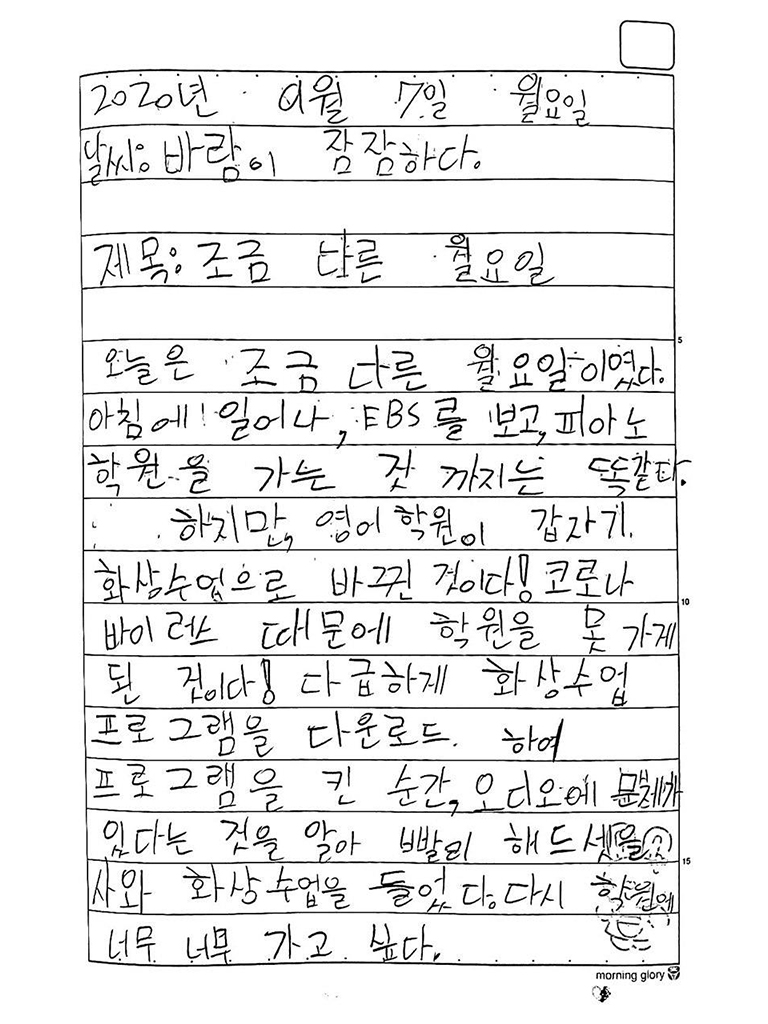 2020년 9월 7일 월요일
날씨: 바람이 잠잠하다.
제목: 조금 다른 월요일
오늘은 조금 다른 월요일이였다.
아침에 일어나, EBS를 보고, 피아노
학원을 가는 것 까지는 똑같다.
하지만, 영어학원이 갑자기
화상수업으로 바뀐 것이다! 코로나
바이러스 때문에 학원을 못 가게
된 것이다! 다급하게 화상수업
프로그램을 다운로드 하여
프로그램을 킨 순간, 오디오에 문제가
있다는 것을 알아 빨리 해드셋을
사와 화상수업을 들었다. 다시 학원에
너무 너무 가고 싶다.
morning glory
5
10
15